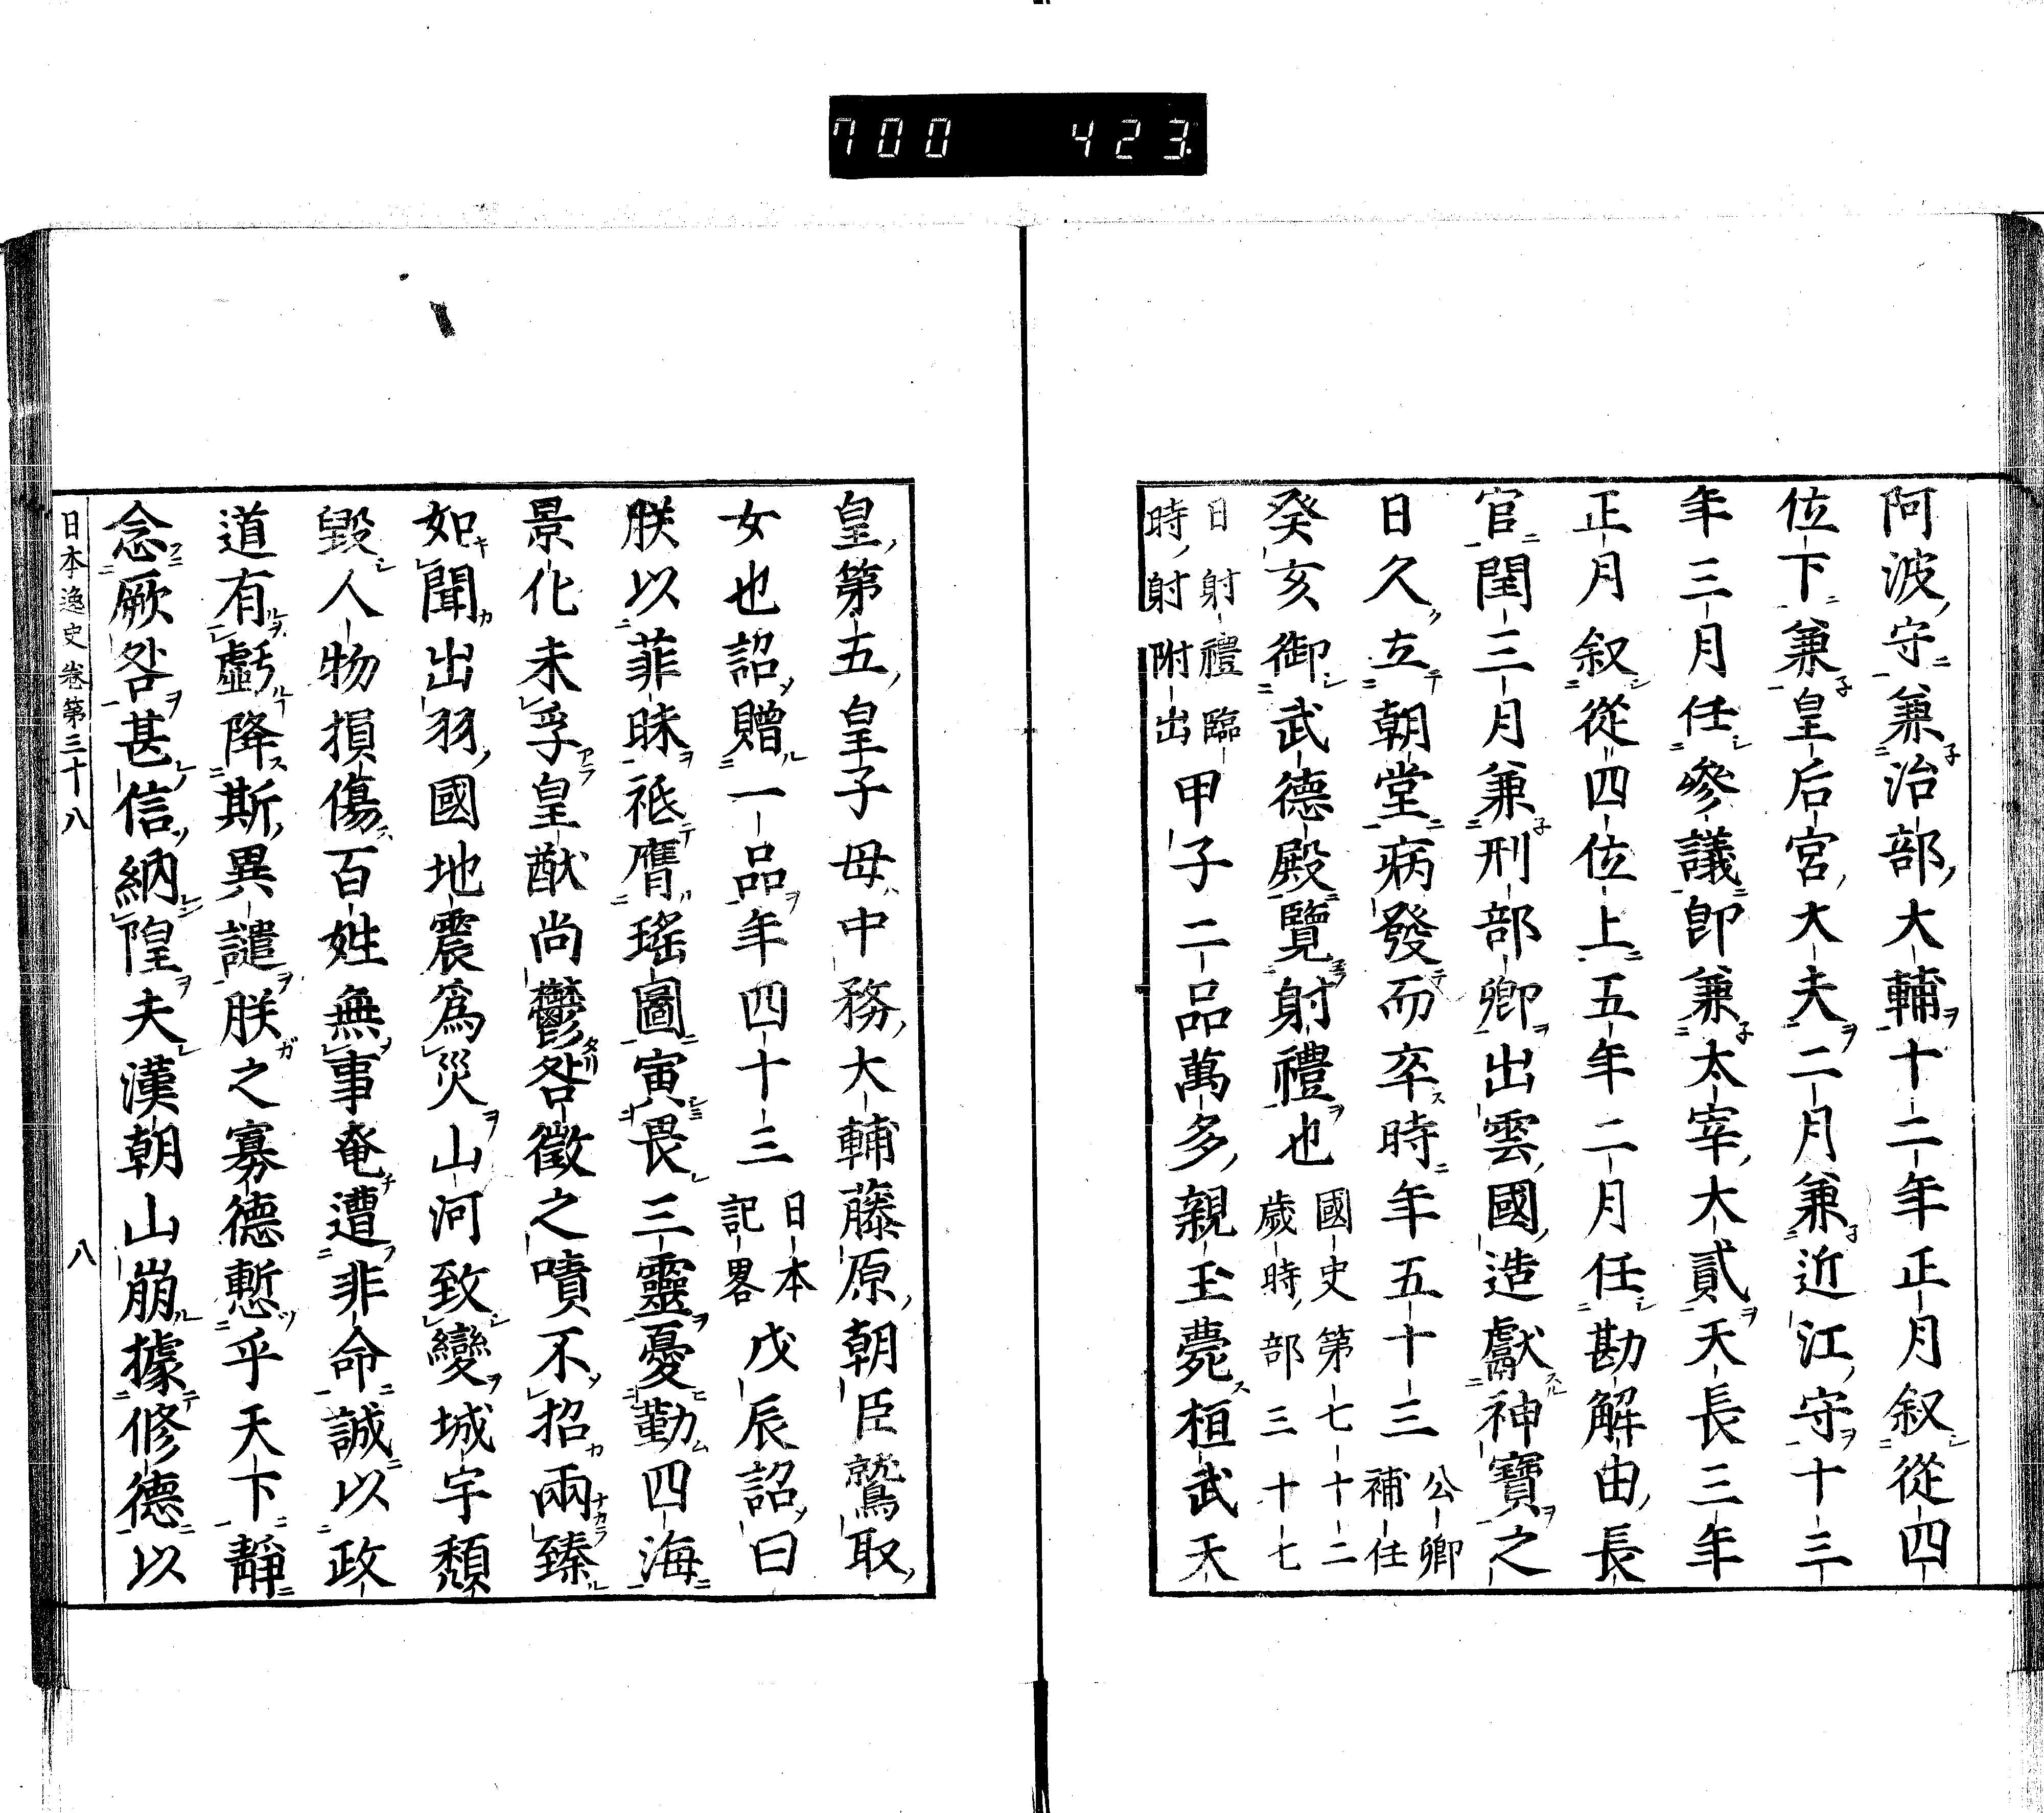 700 423
阿波守兼治部大輔十二年正月叙從四
位下兼皇后宮大夫二月兼近江守十三
年三月任參議卽兼太宰大貳天長三年
正月叙從四位上五年二月任勘解由長
官閏三月兼刑部卿出雲國造獻神寶之
日久立朝堂病發而卒時年五十三公卿補任
癸亥御武德殿覽射禮也國史第七十二歲時部三十七
日射禮臨時射附出甲子二品萬多親王薨桓武天
皇第五皇子母中務大輔藤原朝臣鷲取
女也詔贈一品年四十三日本記畧戊辰詔曰
朕以菲昧祇膺瑤圖寅畏三靈憂勤四海
景化未孚皇猷尚鬱咎徵之嘖不招兩臻
如聞出羽國地震爲災山河致變城宇頽
毀人物損傷百姓無事奄遭非命誠以政
道有虧降斯異譴朕之寡德慙乎天下靜
念厥咎甚信納隍夫漢朝山崩據修德以
日本逸史卷第三十八 八